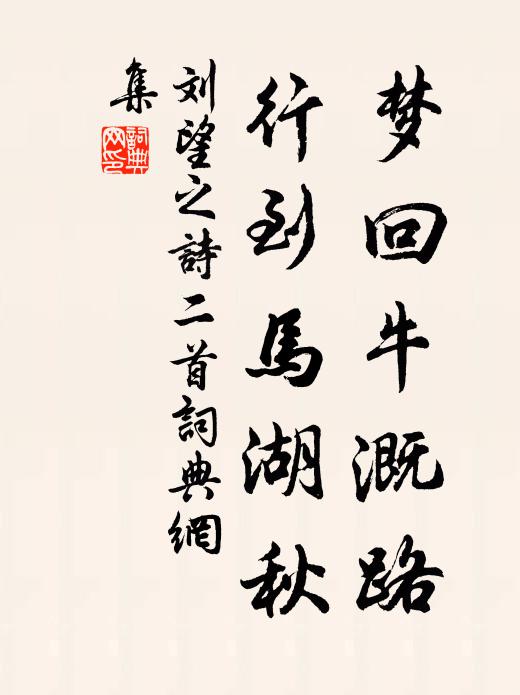 梦回牛溉路
行到馬湖秋
刘望之詩二首詞典網
集
詞典
网印